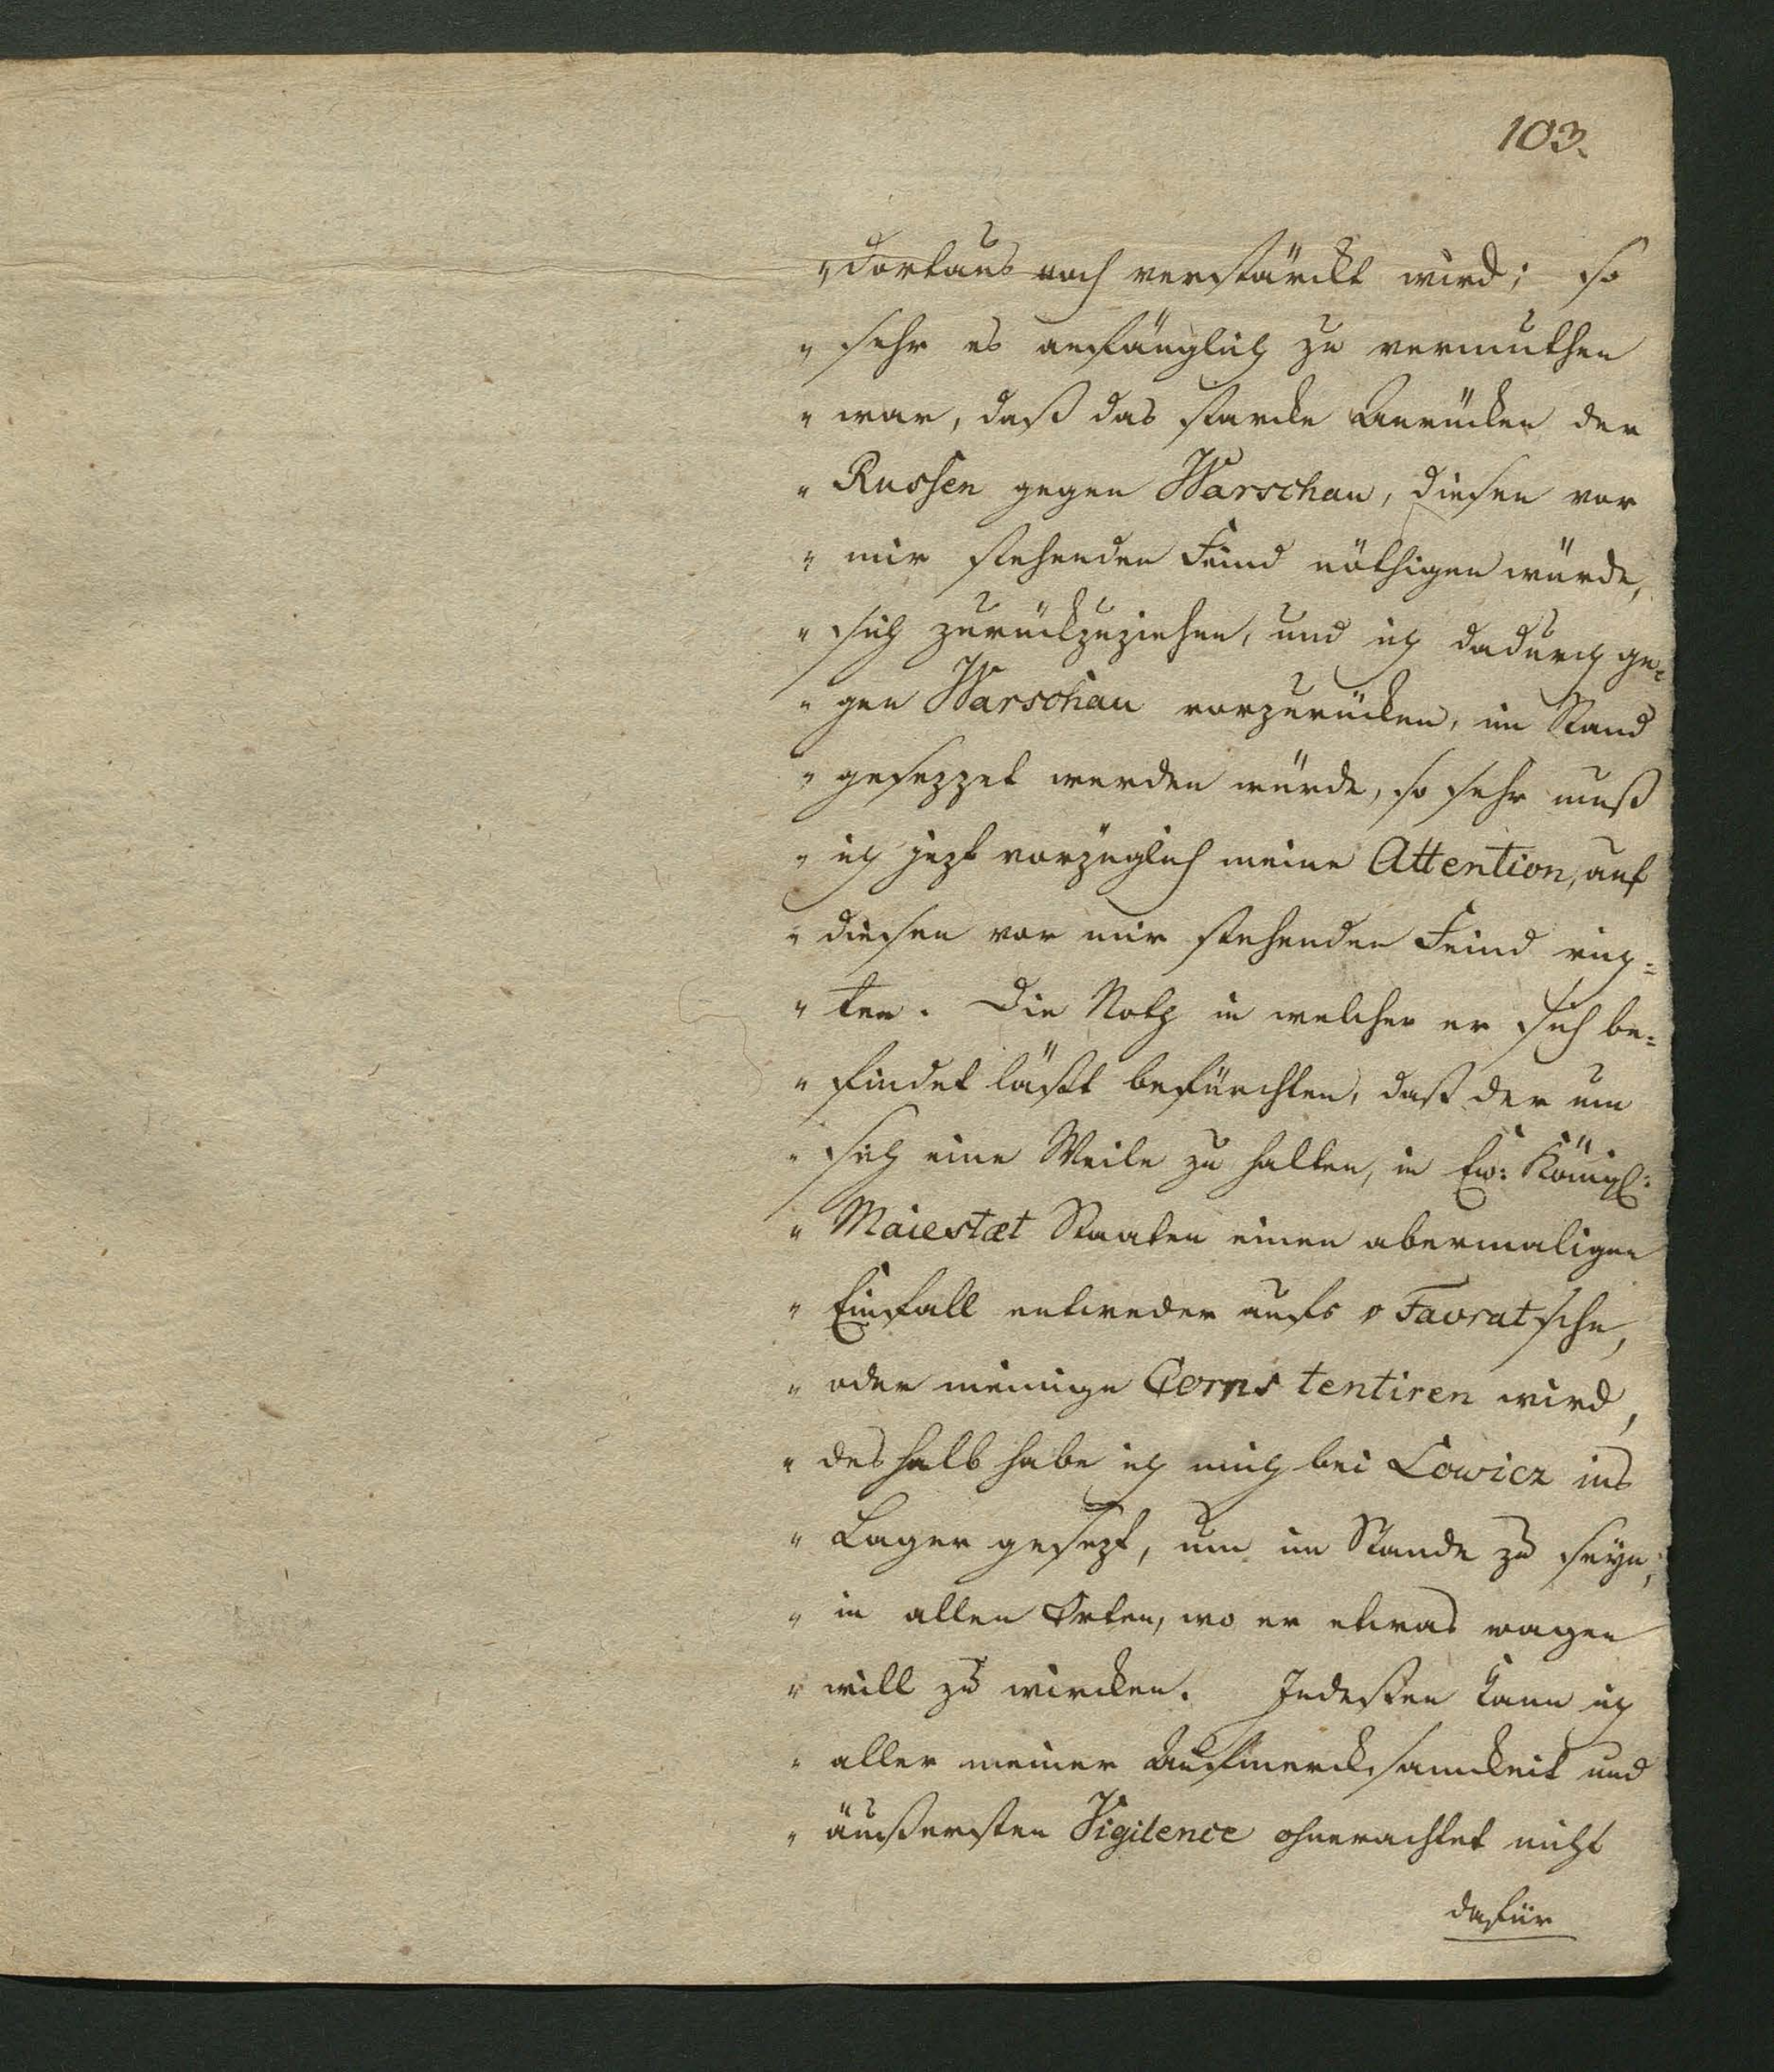 103.
„dortaus noch verstärckt wird; so
„ sehr es anfänglich zu vermuthen
„ war, daß das starcke Anrücken der
„ Russen gegen Warschau, diesen vor
„ mir stehenden Feind nöthigen würde,
„ sich zurückzuziehen, und ich dadurch ge=
„ gen Warschau vorzurücken, im Stand
„ gesezzet werden würde, so sehr muß
„ ich jezt vorzüglich meine Attention, auf
„ diesen vor mir stehenden Feind rich=
„ ten. Die Noth in welcher er sich be=
„ findet läßt befürchten, daß der um
„ sich eine Weile zu halten, in Ew: Königl:
„ Maiestæt Staaten einen abermaligen
„ Einfall entweder aufs v Favratsche,
„ oder meinige Corps tentiren wird,
„ deshalb habe ich mich bei Lowicz ins
„ Lager gesezt, um im Stande zu seyn,
„ in allen Orten, wo er etwas wagen
„ will zu wircken. Indeßen kann ich
„ aller meiner Aufmercksamckeit und
„ äußersten Vigilence ohnerachtet nicht
dafür